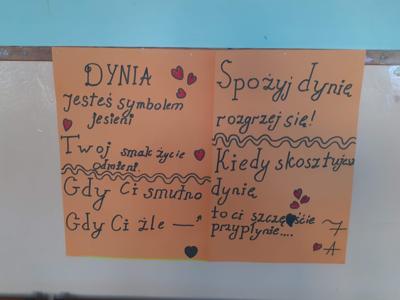 DYNIA
Jesteś symbolem
jesieni
Twoj smak życie
odmieni.
Gdy Ci smutno
Gdy Ci źle —"
Spożyj dynię
rozgrzej się!
Kiedy skosztujesz
dynie
to ci szczęście
przypłynie....
7
A